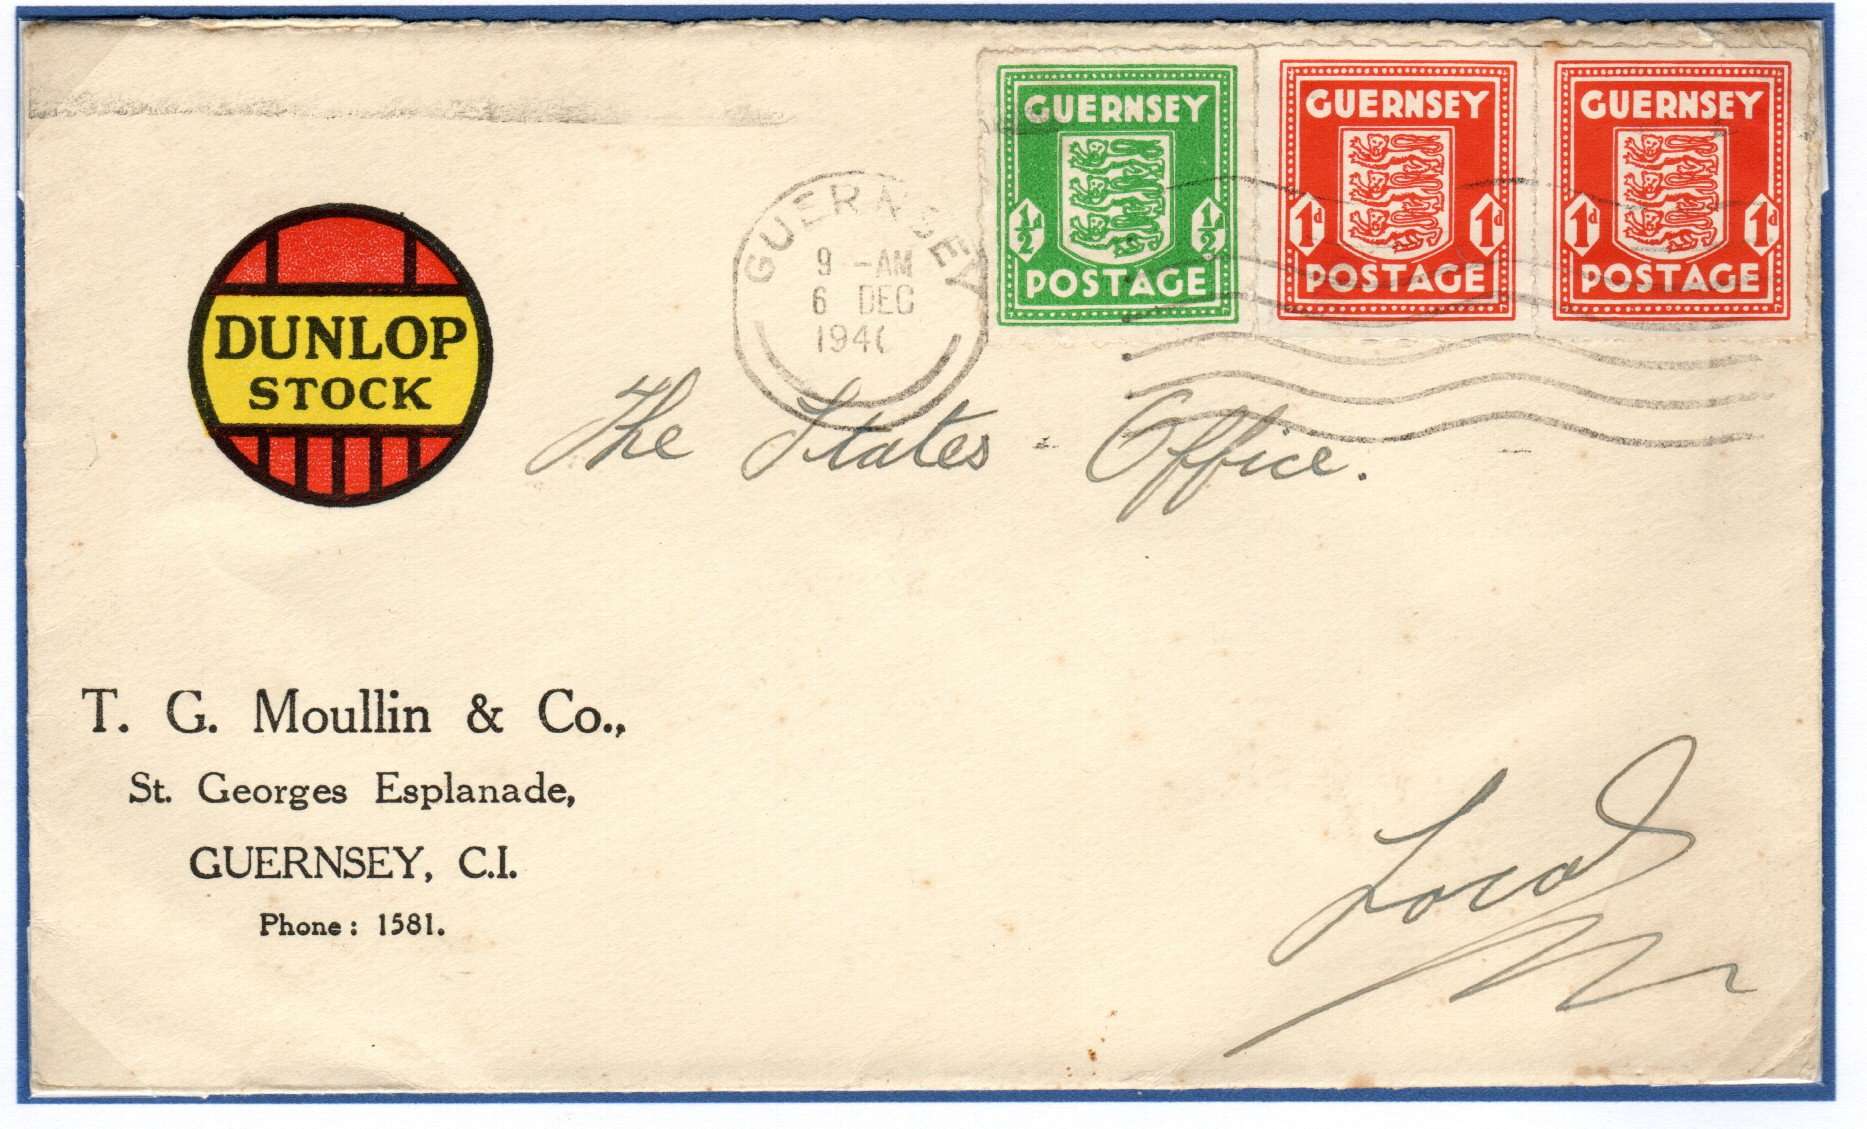 GUERNSEY
½d ½
POSTAGE
GUERNSEY
1d 1d
POSTAGE
GUERNSEY
1d 1d
POSTAGE
GUERNSEY
9 - AM
6 DEC
DUNLOP
STOCK
The States Office.
T. G. Moullin & Co.,
St. Georges Esplanade,
GUERNSEY, C.I.
Phone: 1581.
Local